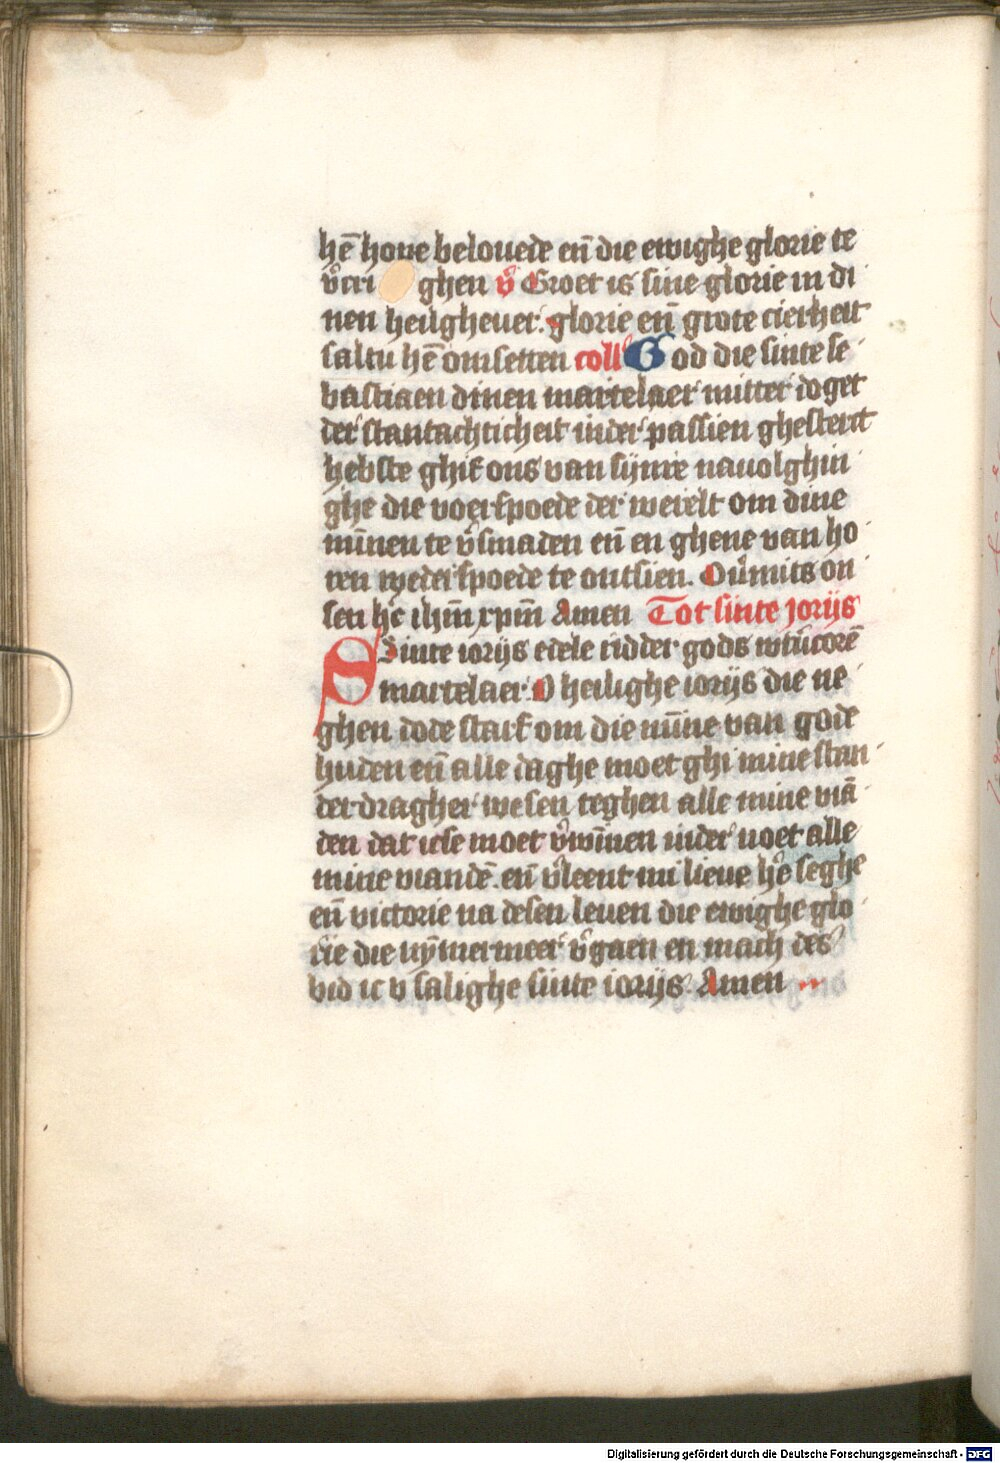 hē houe belouede en̄ die ewighe glorie te
v̄cri ghen v̄ Groet is sine glorie in di
nen heilgheuer. glorie en̄ grote cierheit
saltu hē omsetten coll͛ God die sinte se
bastiaen dinen martelaer mitter doget
der stantachticheit inder passien ghesterct
hebste ghif ons van sijnre nauolghin
ghe die voerspoede der werelt om dine
mīnen te v̄smaden en̄ en ghene van ho
ren wederspoede te ontsien. Ouͥmits on
sen hē ihm̄ xpm̄ Amen Tot sinte jorijs
O Sinte iorijs edele ridder gods
martelaer. O heilighe iorijs die ne
ghen dode starf om die mīne van gode
huden en̄ alle daghe moet ghi mine stan
derdragher wesen teghen alle mine viā
den dat icse moet v̄wīnen inder noet alle
mine viandē. en̄ v̄leent mi lieue hē seghe
en̄ victorie na desen leuen die ewighe glo
rie die nȳmermeer v̄gaen en mach des
bid ic v salighe sinte iorijs. Amen
Digitalisierung gefördert durch die Deutsche Forschungsgemeinschaft - DFG